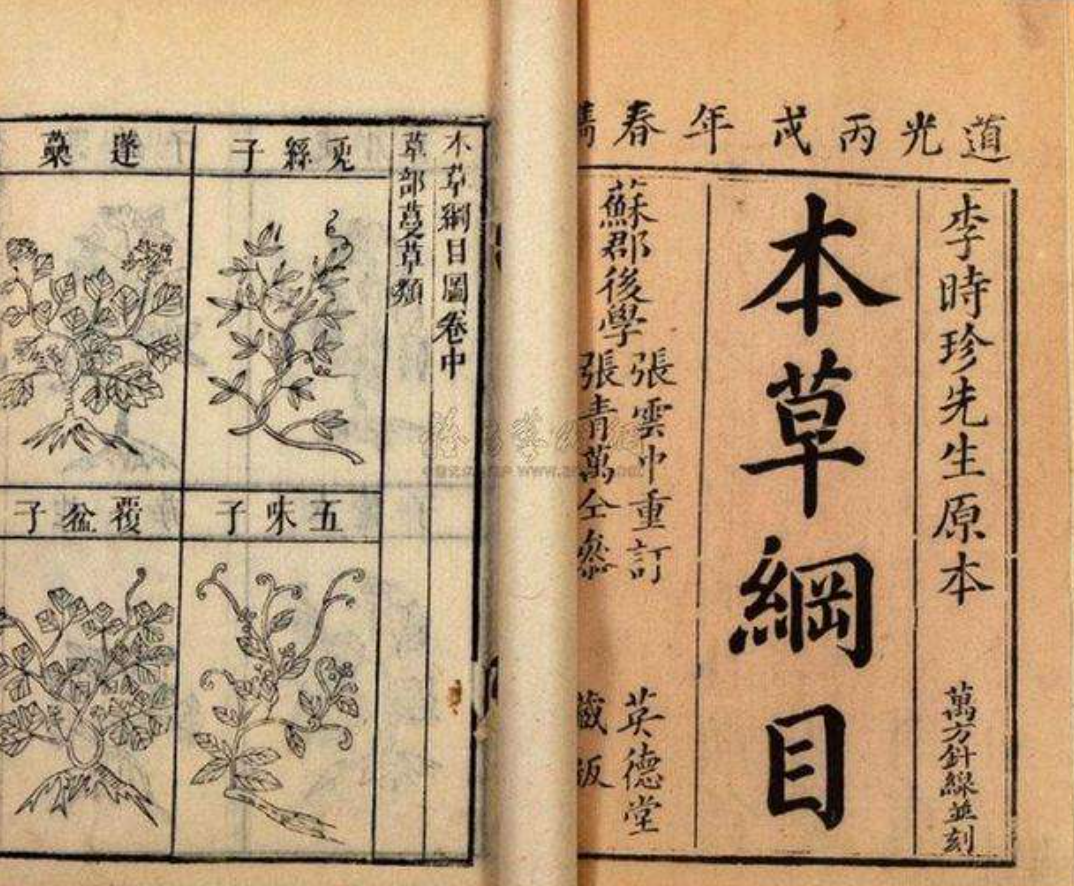 道光丙戌年春
李時珍先生原本
萬方針線並刻
本草綱目
蘇郡後學
張雲中重訂
張青萬仝叅
英德堂
藏版
本草綱目圖卷中
草部蔓草類
兎絲子
蓬蘽
五味子
覆盆子